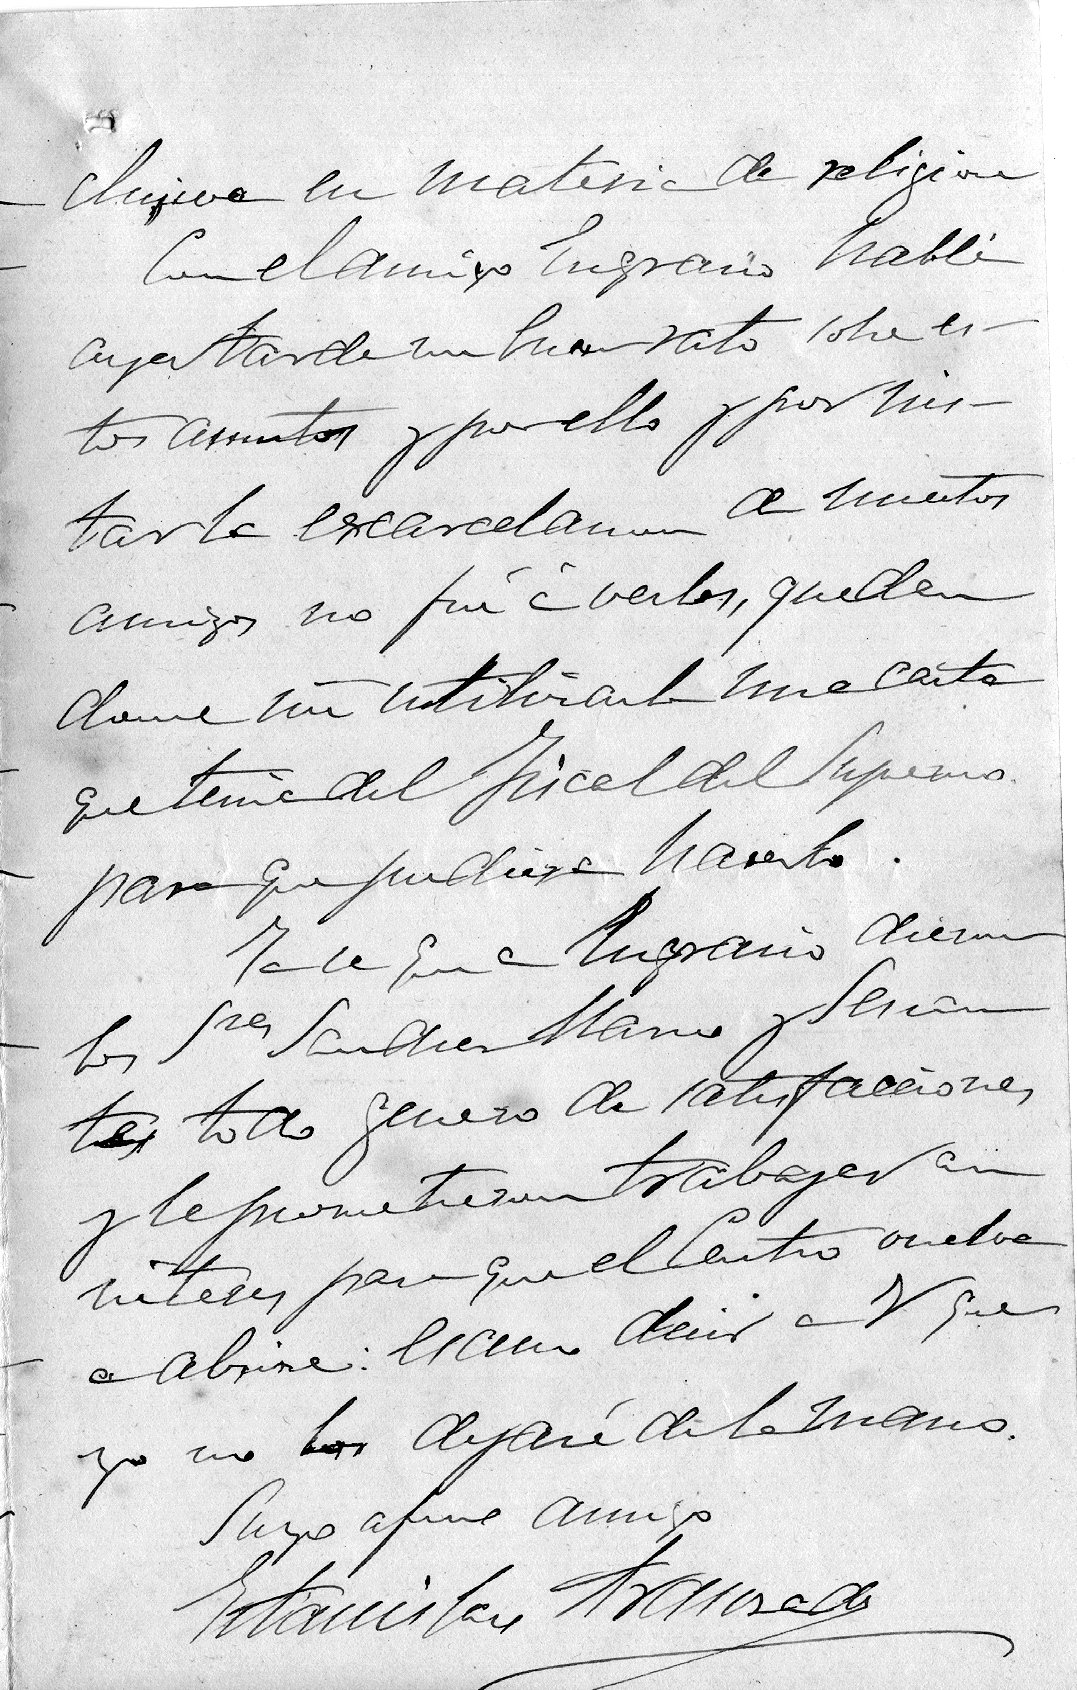 en materia de religion
Con el amigo Engracio hablé
ayer tarde un buen rato sobre es-
tos asuntos y por ello y por ins-
tar la excarcelacion de nuestros
amigos no fui á verlos, quedan
dome sin utilizar una carta
que tenia del Fiscal del Supremo
para que pudiera hacerlo.
Ya se que a Engracio dieron
los Sres Sanchez Llano y
todo genero de satisfacciones
y le prometieron trabajar con
interes para que el Centro vuelva
a abrirse: excuso decir a V que
yo no los dejaré de la mano.
Suyo afmo amigo
Estanislao